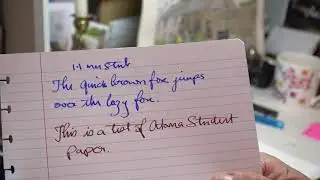 1.1 mm Stub
The quick brown fox jumps
over the lazy fox.
This is a test of Atoma Student
paper.